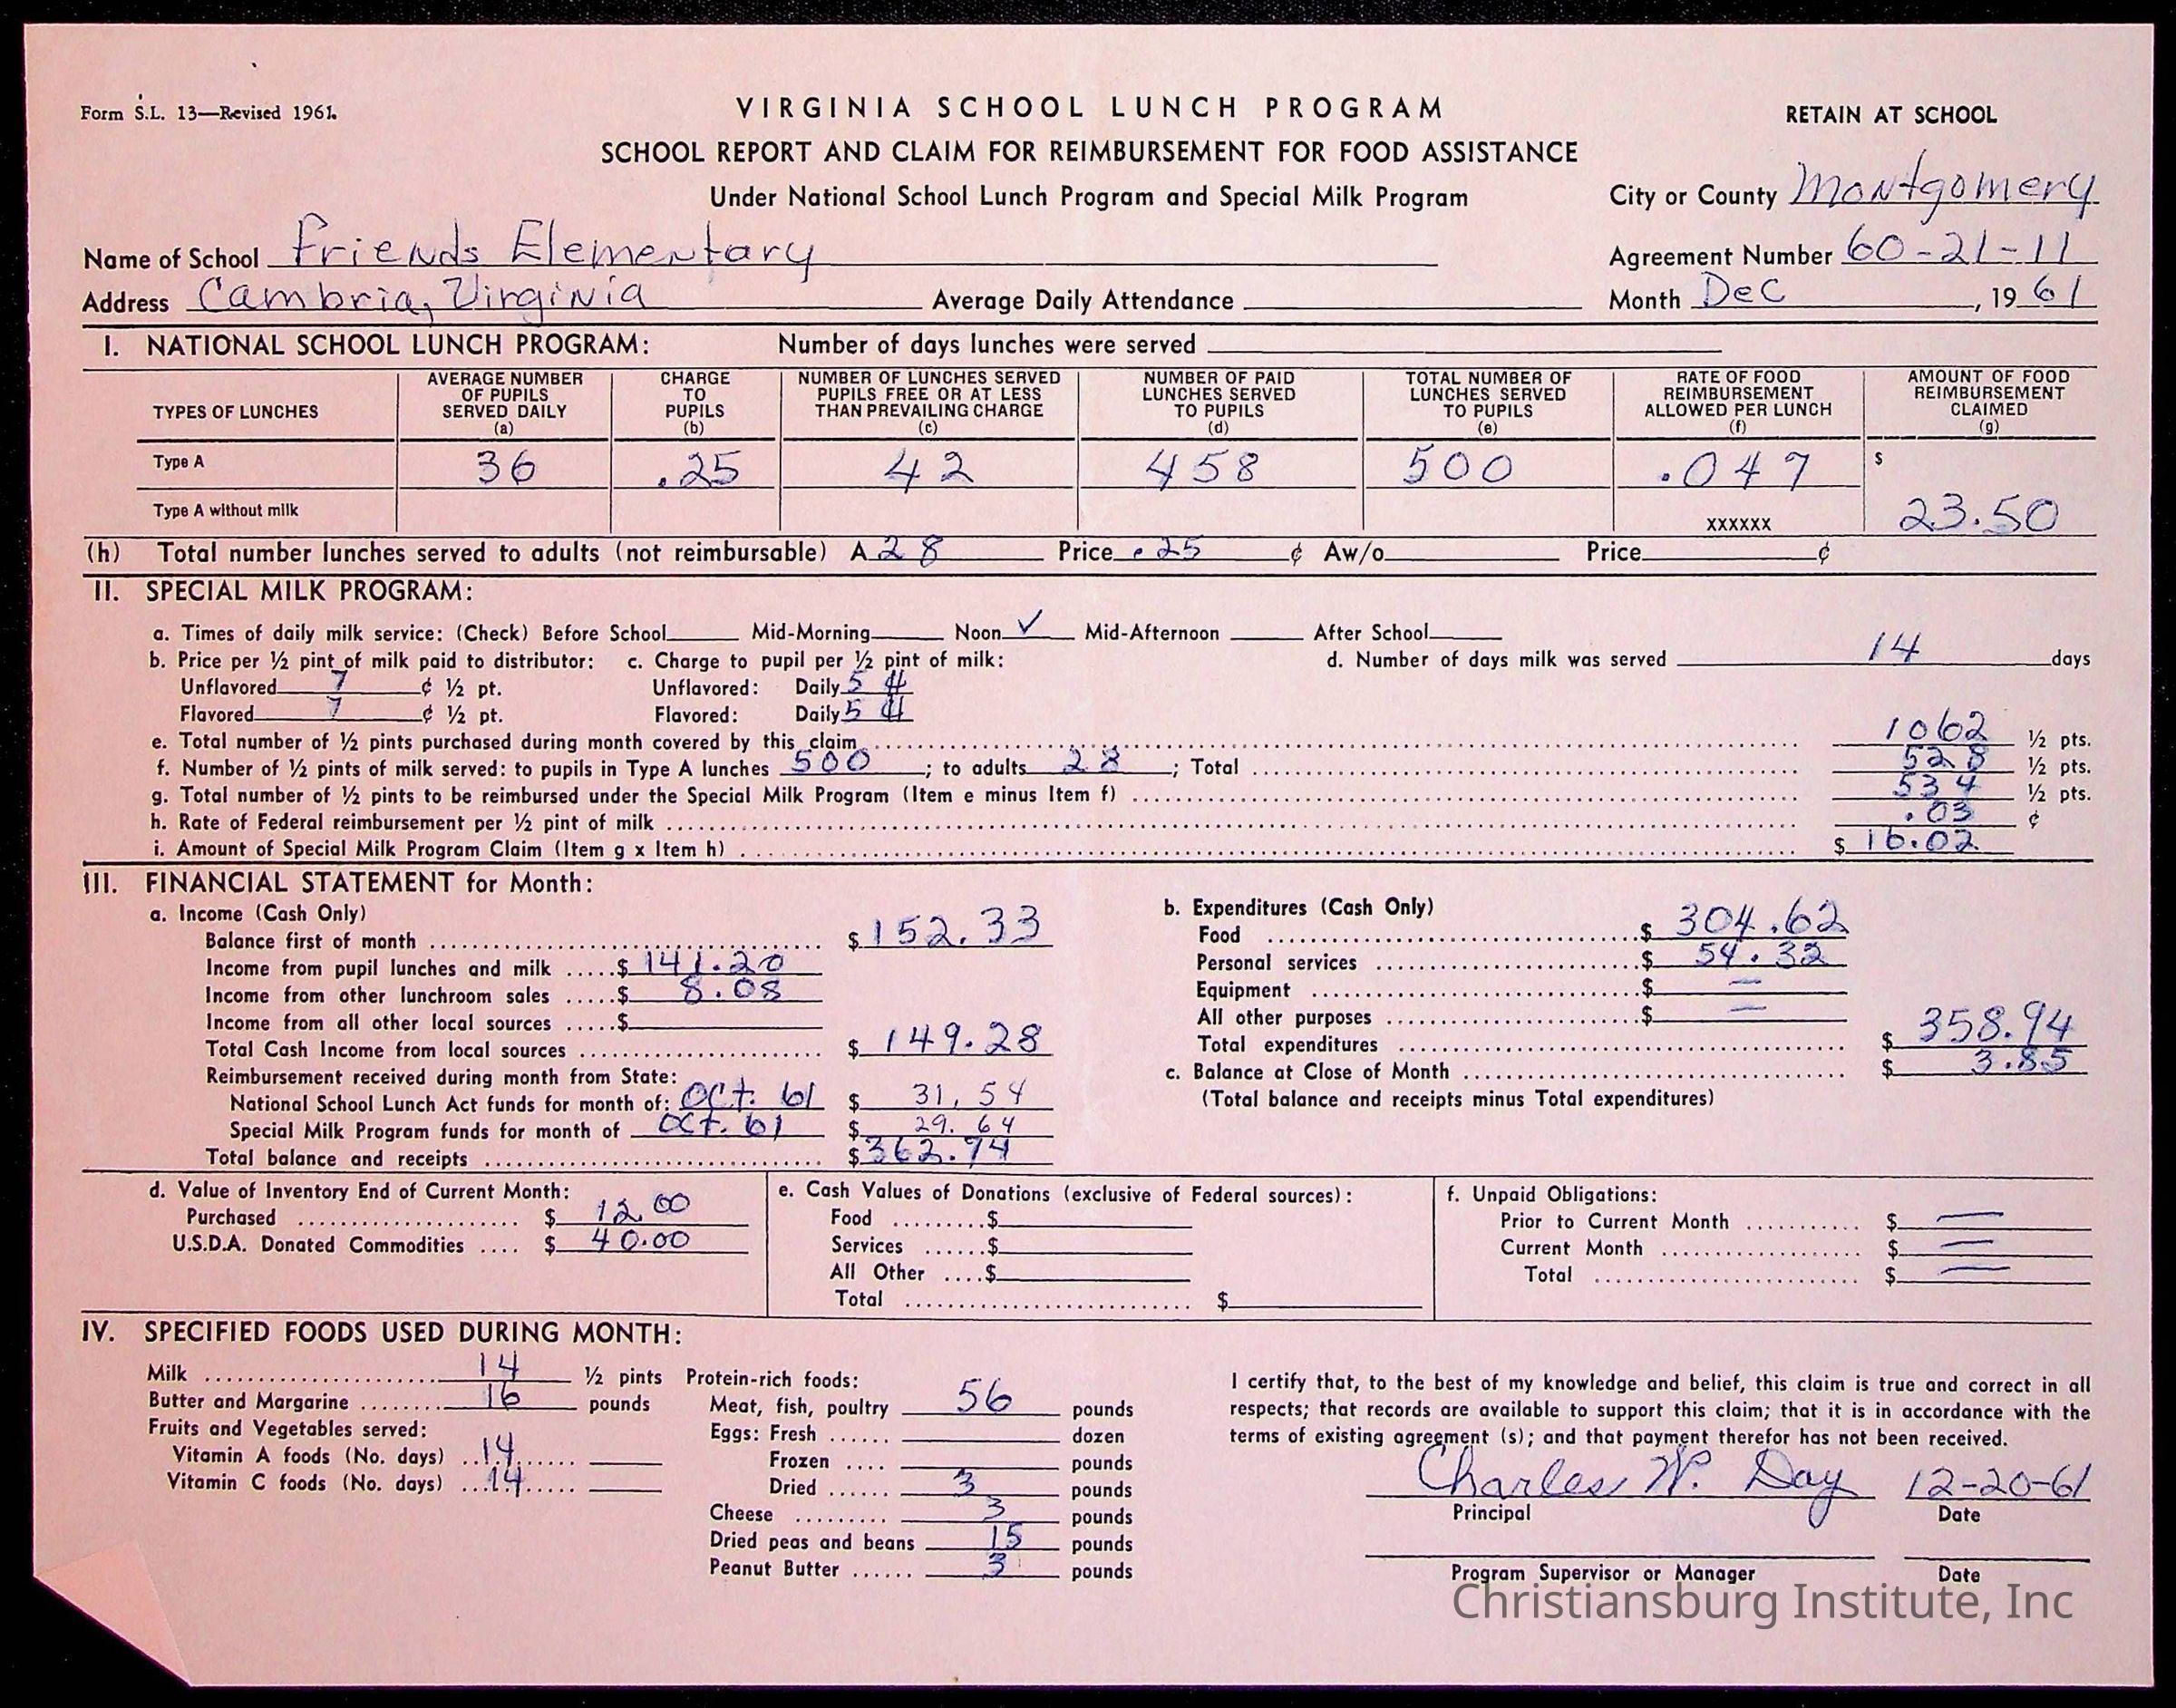 Form S.L. 13—Revised 1961.
VIRGINIA SCHOOL LUNCH PROGRAM
RETAIN AT SCHOOL
SCHOOL REPORT AND CLAIM FOR REIMBURSEMENT FOR FOOD ASSISTANCE
Under National School Lunch Program and Special Milk Program
City or County Montgomery
Name of School Friends Elementary
Agreement Number 60-21-11
Address Cambria, Virginia Average Daily Attendance
Month Dec, 19 61
I. NATIONAL SCHOOL LUNCH PROGRAM: Number of days lunches were served
TYPES OF LUNCHES
AVERAGE NUMBER OF PUPILS SERVED DAILY (a)
CHARGE TO PUPILS (b)
NUMBER OF LUNCHES SERVED PUPILS FREE OR AT LESS THAN PREVAILING CHARGE (c)
NUMBER OF PAID LUNCHES SERVED TO PUPILS (d)
TOTAL NUMBER OF LUNCHES SERVED TO PUPILS (e)
RATE OF FOOD REIMBURSEMENT ALLOWED PER LUNCH (f)
AMOUNT OF FOOD REIMBURSEMENT CLAIMED (g)
Type A 36 .25 42 458 500 .047 $
Type A without milk XXXXXX 23.50
(h) Total number lunches served to adults (not reimbursable) A 28 Price .25 ¢ Aw/o Price ¢
II. SPECIAL MILK PROGRAM:
a. Times of daily milk service: (Check) Before School Mid-Morning Noon ✓ Mid-Afternoon After School
b. Price per ½ pint of milk paid to distributor: c. Charge to pupil per ½ pint of milk: d. Number of days milk was served 14 days
Unflavored 7 ¢ ½ pt. Unflavored: Daily 5 ¢
Flavored 7 ¢ ½ pt. Flavored: Daily 5 ¢
e. Total number of ½ pints purchased during month covered by this claim 1062 ½ pts.
f. Number of ½ pints of milk served: to pupils in Type A lunches 500; to adults 28; Total 528 ½ pts.
g. Total number of ½ pints to be reimbursed under the Special Milk Program (Item e minus Item f) 534 ½ pts.
h. Rate of Federal reimbursement per ½ pint of milk .03 ¢
i. Amount of Special Milk Program Claim (Item g x Item h) $ 16.02
III. FINANCIAL STATEMENT for Month:
a. Income (Cash Only)
Balance first of month $ 152.33
Income from pupil lunches and milk $ 141.20
Income from other lunchroom sales $ 8.08
Income from all other local sources $
Total Cash Income from local sources $ 149.28
Reimbursement received during month from State:
National School Lunch Act funds for month of: Oct. 61 $ 31,54
Special Milk Program funds for month of Oct. 61 $ 29.64
Total balance and receipts $ 362.94
b. Expenditures (Cash Only)
Food $ 304.62
Personal services $ 54.32
Equipment $ —
All other purposes $ —
Total expenditures $ 358.94
c. Balance at Close of Month $ 3.85
(Total balance and receipts minus Total expenditures)
d. Value of Inventory End of Current Month:
Purchased $ 12.00
U.S.D.A. Donated Commodities $ 40.00
e. Cash Values of Donations (exclusive of Federal sources):
Food $
Services $
All Other $
Total $
f. Unpaid Obligations:
Prior to Current Month $ —
Current Month $ —
Total $ —
IV. SPECIFIED FOODS USED DURING MONTH:
Milk 14 ½ pints
Butter and Margarine 16 pounds
Fruits and Vegetables served:
Vitamin A foods (No. days) 14
Vitamin C foods (No. days) 14
Protein-rich foods:
Meat, fish, poultry 56 pounds
Eggs: Fresh dozen
Frozen pounds
Dried 3 pounds
Cheese 3 pounds
Dried peas and beans 15 pounds
Peanut Butter 3 pounds
I certify that, to the best of my knowledge and belief, this claim is true and correct in all
respects; that records are available to support this claim; that it is in accordance with the
terms of existing agreement (s); and that payment therefor has not been received.
Charles W. Day 12-20-61
Principal Date
Program Supervisor or Manager Date
Christiansburg Institute, Inc